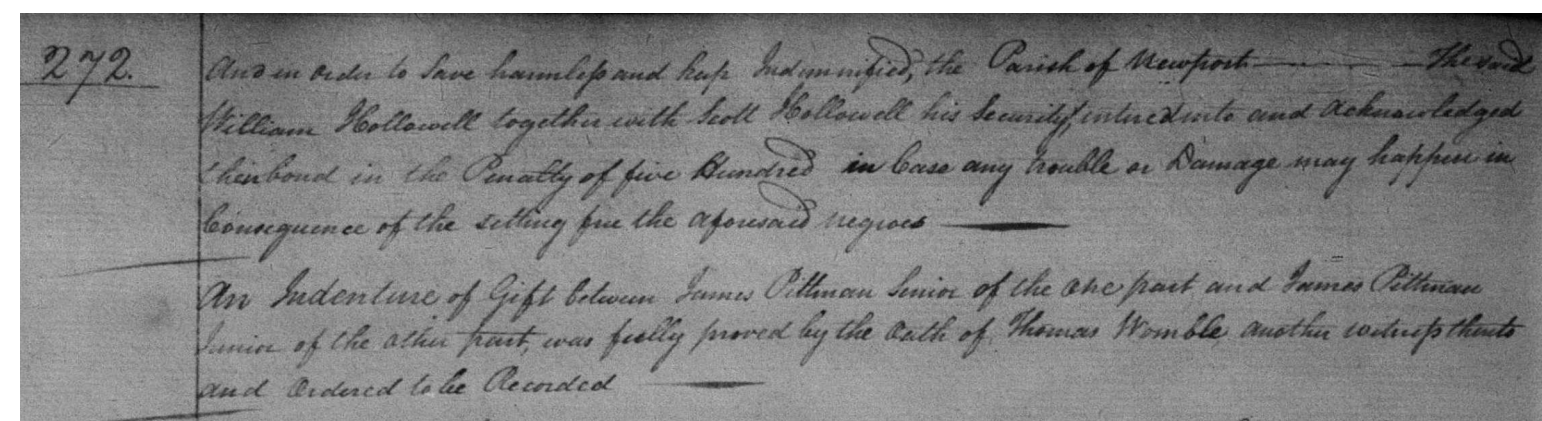 272.
And in order to Save harmless and keep Indemnified, the Parish of Newport — The said
William Hollowell together with Scott Hollowell his Security, entered into and Acknowledged
their bond in the Penalty of five Hundred in Case any trouble or Damage may happen in
Consequence of the setting free the aforesaid negroes —
An Indenture of Gift between James Pittman Senior of the one part and James Pittman
Junior of the other part, was fully proved by the Oath of Thomas Womble another witness thereto
and Ordered to be Recorded —